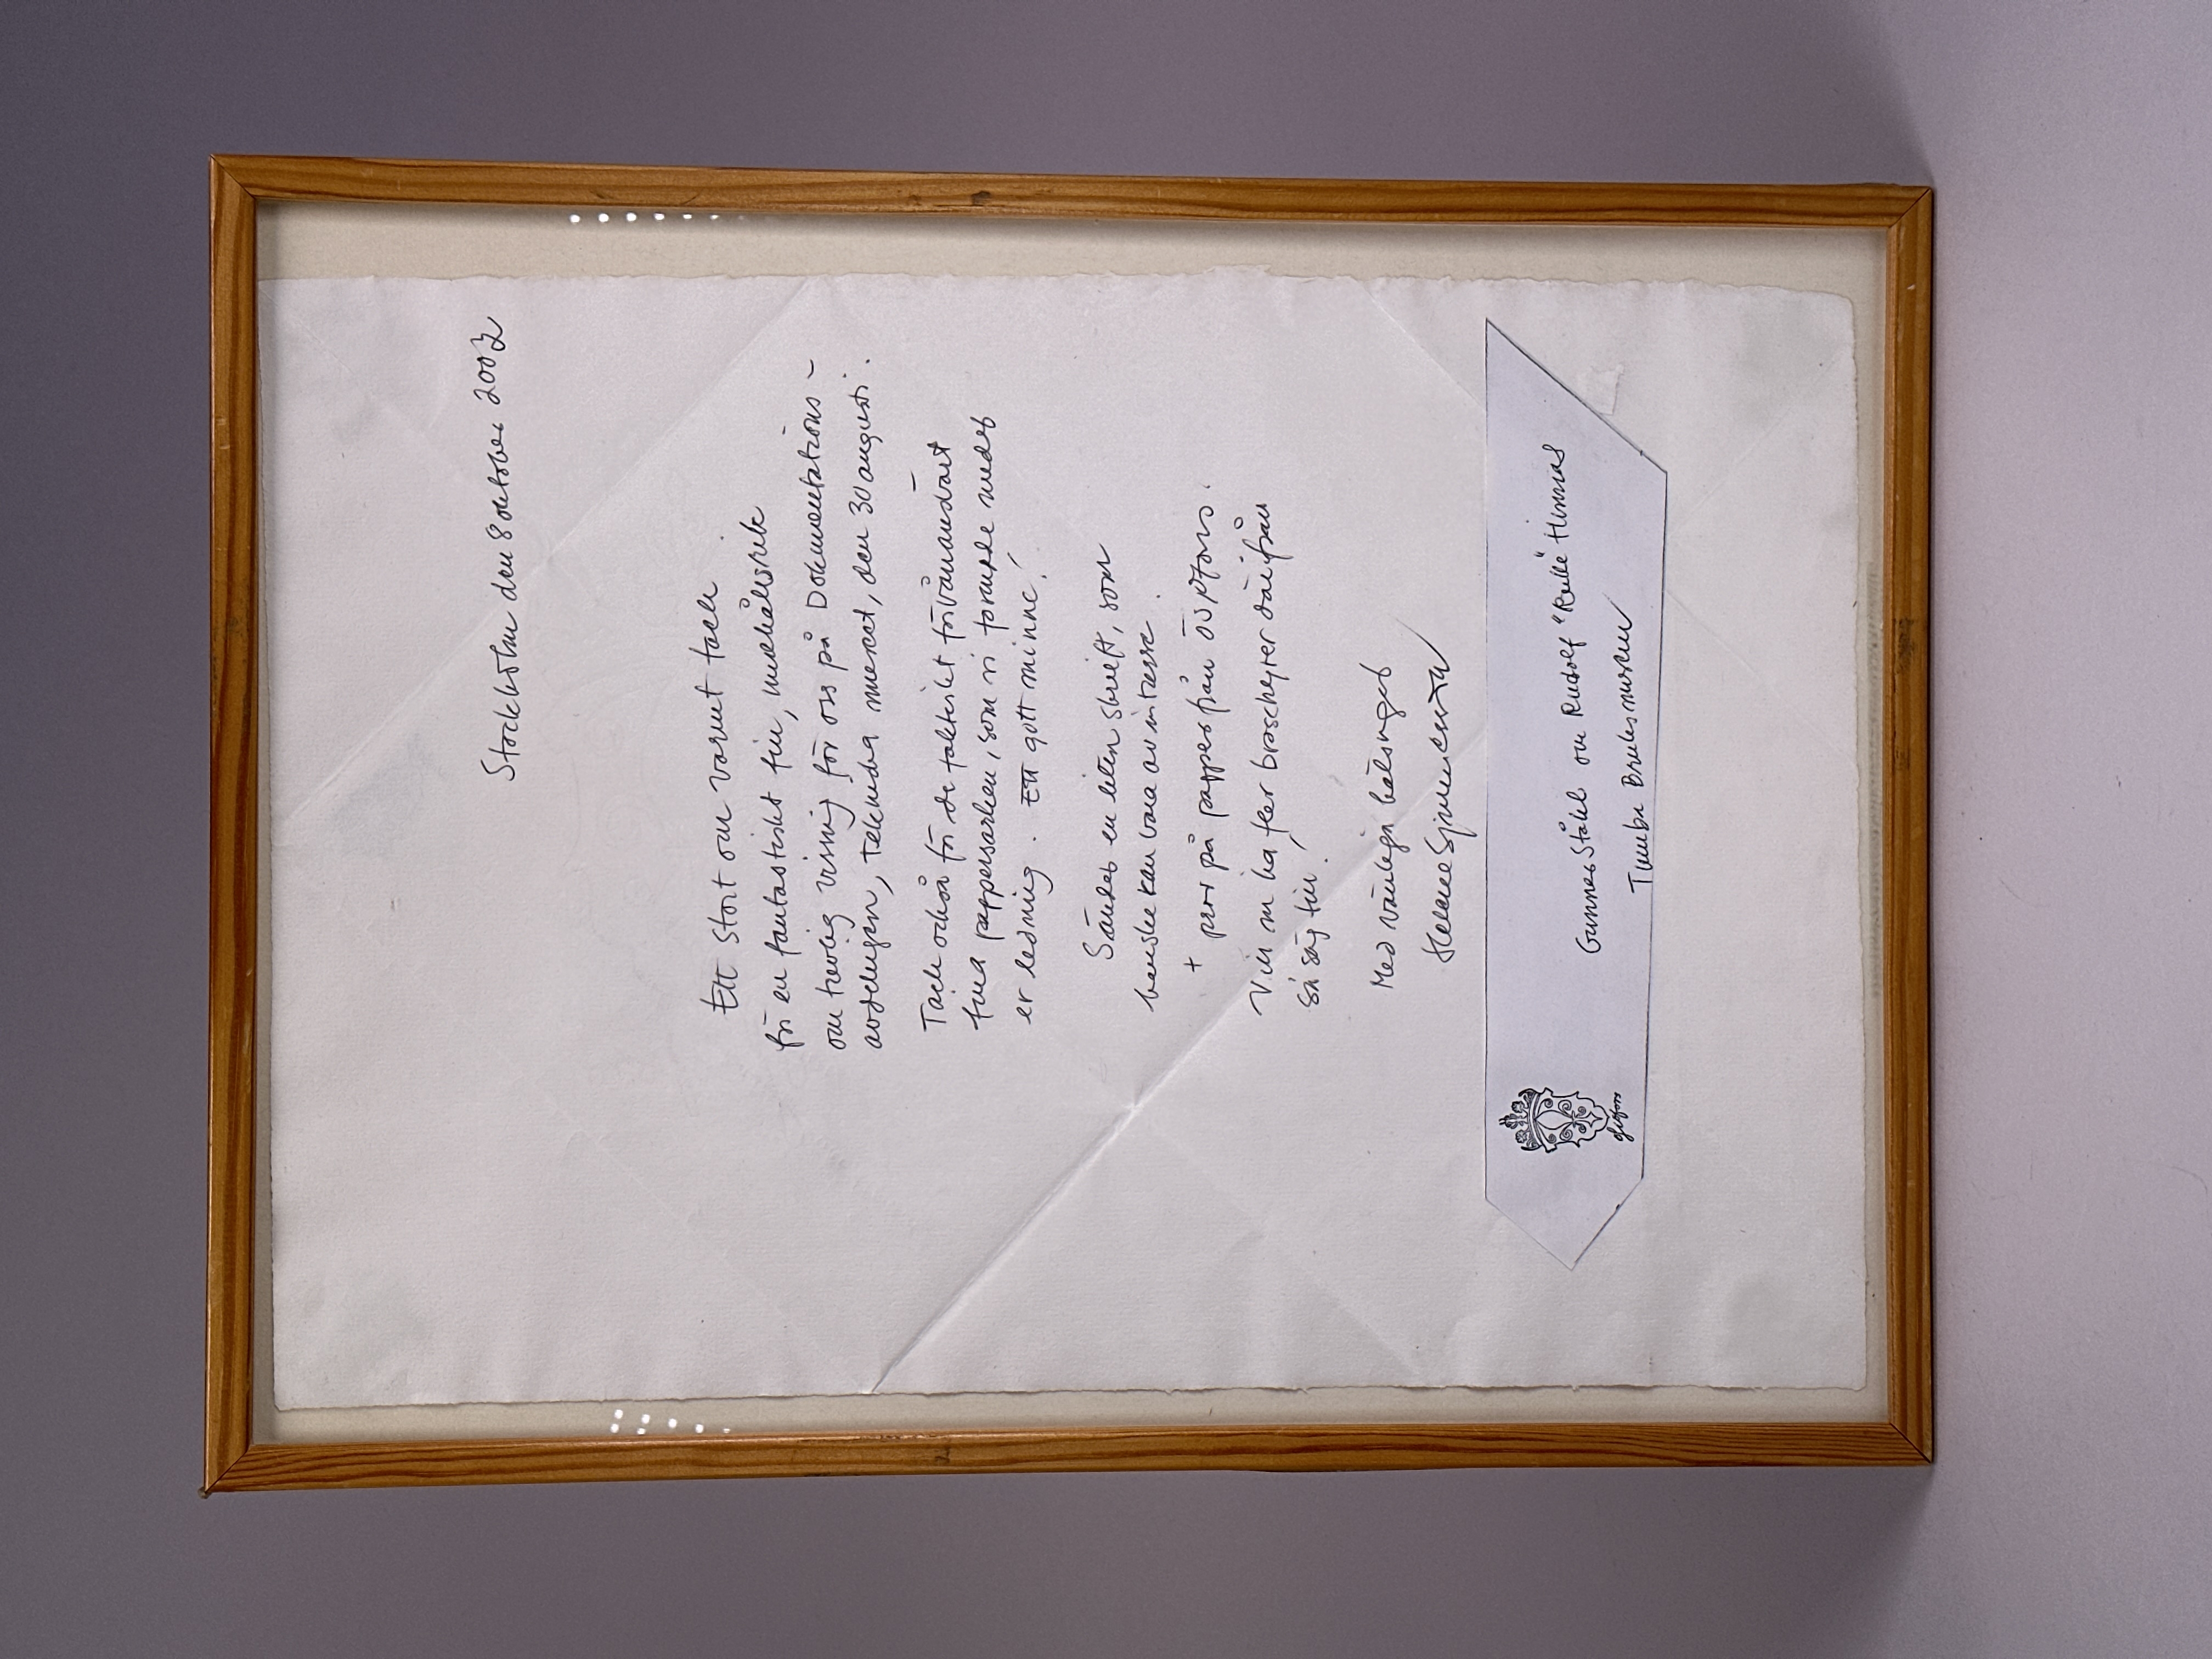 Stockholm den 8 oktober 2002
Ett stort och varmt tack
för en fantastiskt fin, innehållsrik
och trevlig visning för oss på Dokumentations-
avdelningen, Tekniska museet, den 30 augusti.
Tack också för de faktiskt förvånansvärt
fina pappersarken, som vi formade under
er ledning. Ett gott minne!
Sänder en liten skrift, som
kanske kan vara av intresse.
+ prov på papper från Ösjöfors.
Vill ni ha fler broschyrer därifrån
så säg till!
Med vänliga hälsningar
Helene Sjunnesson
Gunnar Ståhl och Rudolf "Rulle" Hinnas
Tumba Bruksmuseum